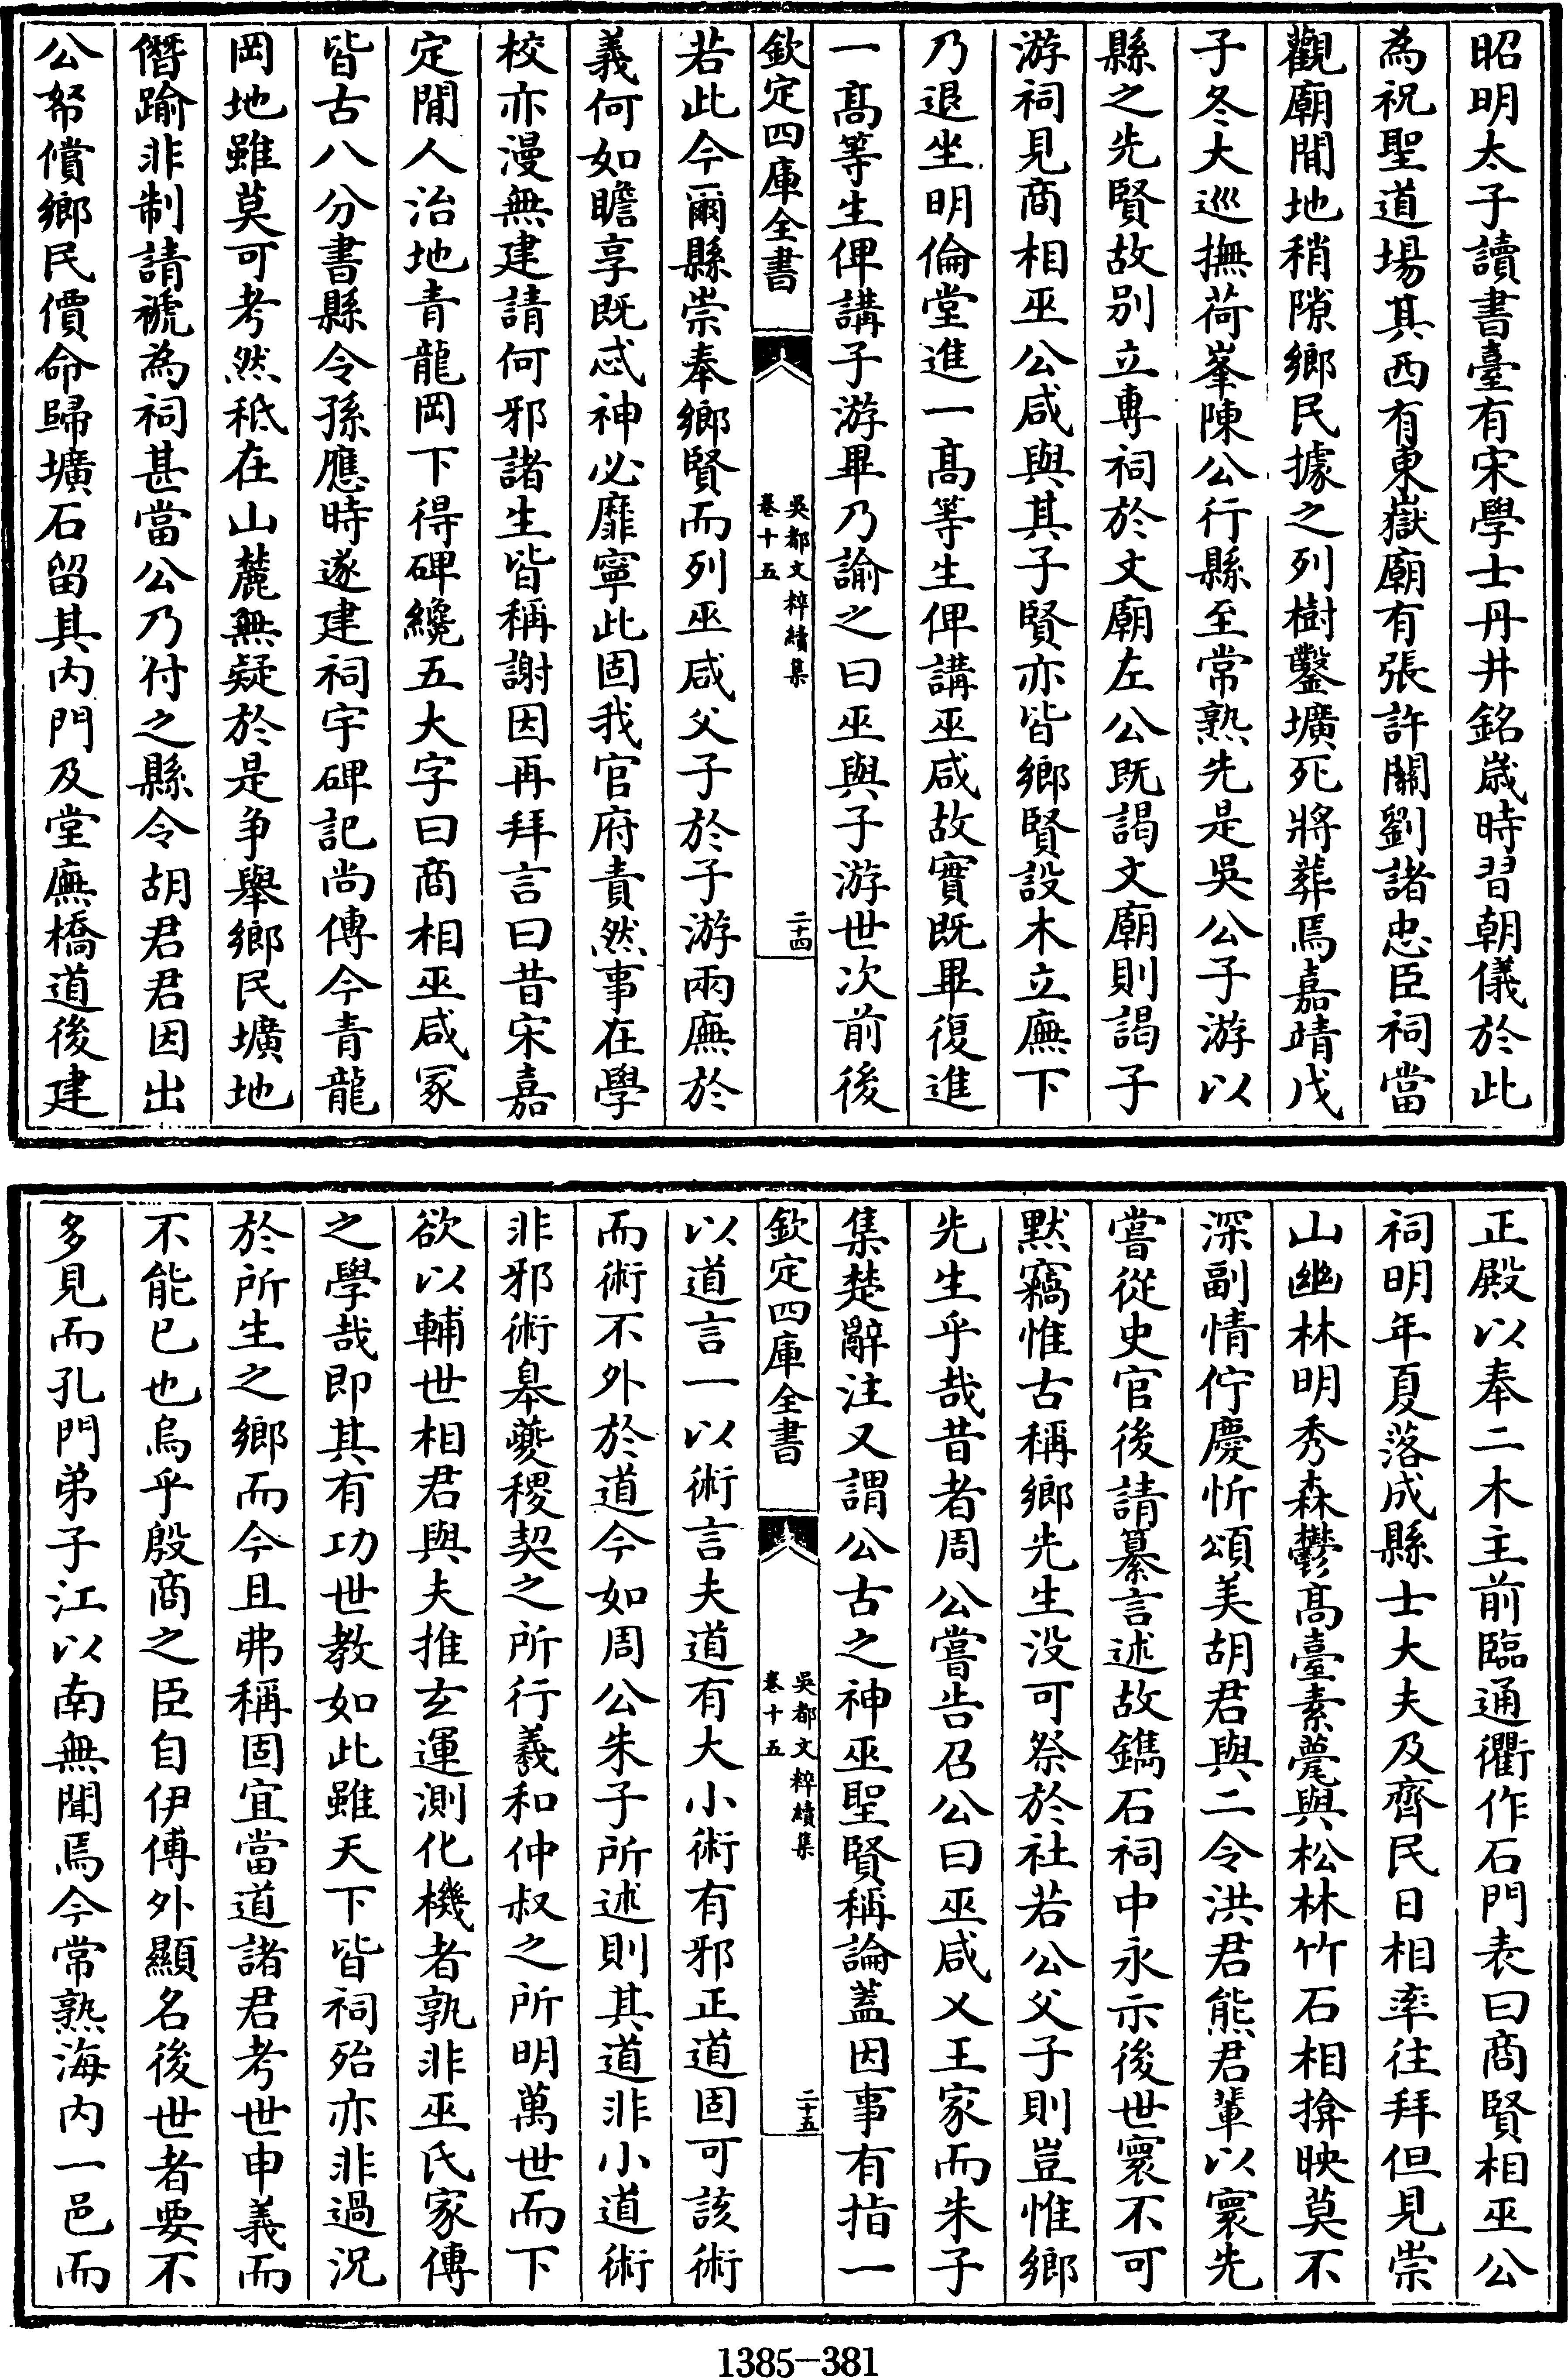 昭明太子讀書臺有宋學士丹井銘歲時習朝儀於此
為祝聖道場其西有東嶽廟有張許關劉諸忠臣祠當
觀廟閒地稍隙鄉民據之列樹鑿壙死將葬焉嘉靖戊
子冬大巡撫荷峯陳公行縣至常熟先是吳公子游以
縣之先賢故别立専祠於文廟左公既謁文廟則謁子
游祠見商相巫公咸與其子賢亦皆鄉賢設木立廡下
乃退坐明倫堂進一髙等生俾講巫咸故實既畢復進
一髙等生俾講子游畢乃諭之曰巫與子游世次前後
欽定四庫全書
吳都文粹續集
卷十五
二十四
若此今爾縣崇奉鄉賢而列巫咸父子於子游兩廡於
義何如瞻享既忒神必靡寧此固我官府責然事在學
校亦漫無建請何邪諸生皆稱謝因再拜言曰昔宋嘉
定閒人治地青龍岡下得碑纔五大字曰商相巫咸冢
皆古八分書縣令孫應時遂建祠宇碑記尚傳今青龍
岡地雖莫可考然秪在山麓無疑於是争舉鄉民壙地
僭踰非制請褫為祠甚當公乃付之縣令胡君君因出
公帑償鄉民價命歸壙石留其内門及堂廡橋道後建
正殿以奉二木主前臨通衢作石門表曰商賢相巫公
祠明年夏落成縣士大夫及齊民日相率往拜但見崇
山幽林明秀森鬱髙臺素甍與松林竹石相揜映莫不
深副情佇慶忻頌美胡君與二令洪君熊君輩以寰先
嘗從史官後請纂言述故鐫石祠中永示後世寰不可
默竊惟古稱鄉先生没可祭於社若公父子則豈惟鄉
先生乎哉昔者周公嘗告召公曰巫咸乂王家而朱子
集楚辭注又謂公古之神巫聖賢稱論蓋因事有指一
欽定四庫全書
吳都文粹續集
卷十五
二十五
以道言一以術言夫道有大小術有邪正道固可該術
而術不外於道今如周公朱子所述則其道非小道術
非邪術皋夔稷契之所行羲和仲叔之所明萬世而下
欲以輔世相君與夫推玄運測化機者孰非巫氏家傳
之學哉即其有功世教如此雖天下皆祠殆亦非過況
於所生之鄉而今且弗稱固宜當道諸君考世申義而
不能已也烏乎殷商之臣自伊傅外顯名後世者要不
多見而孔門弟子江以南無聞焉今常熟海内一邑而
1385-381